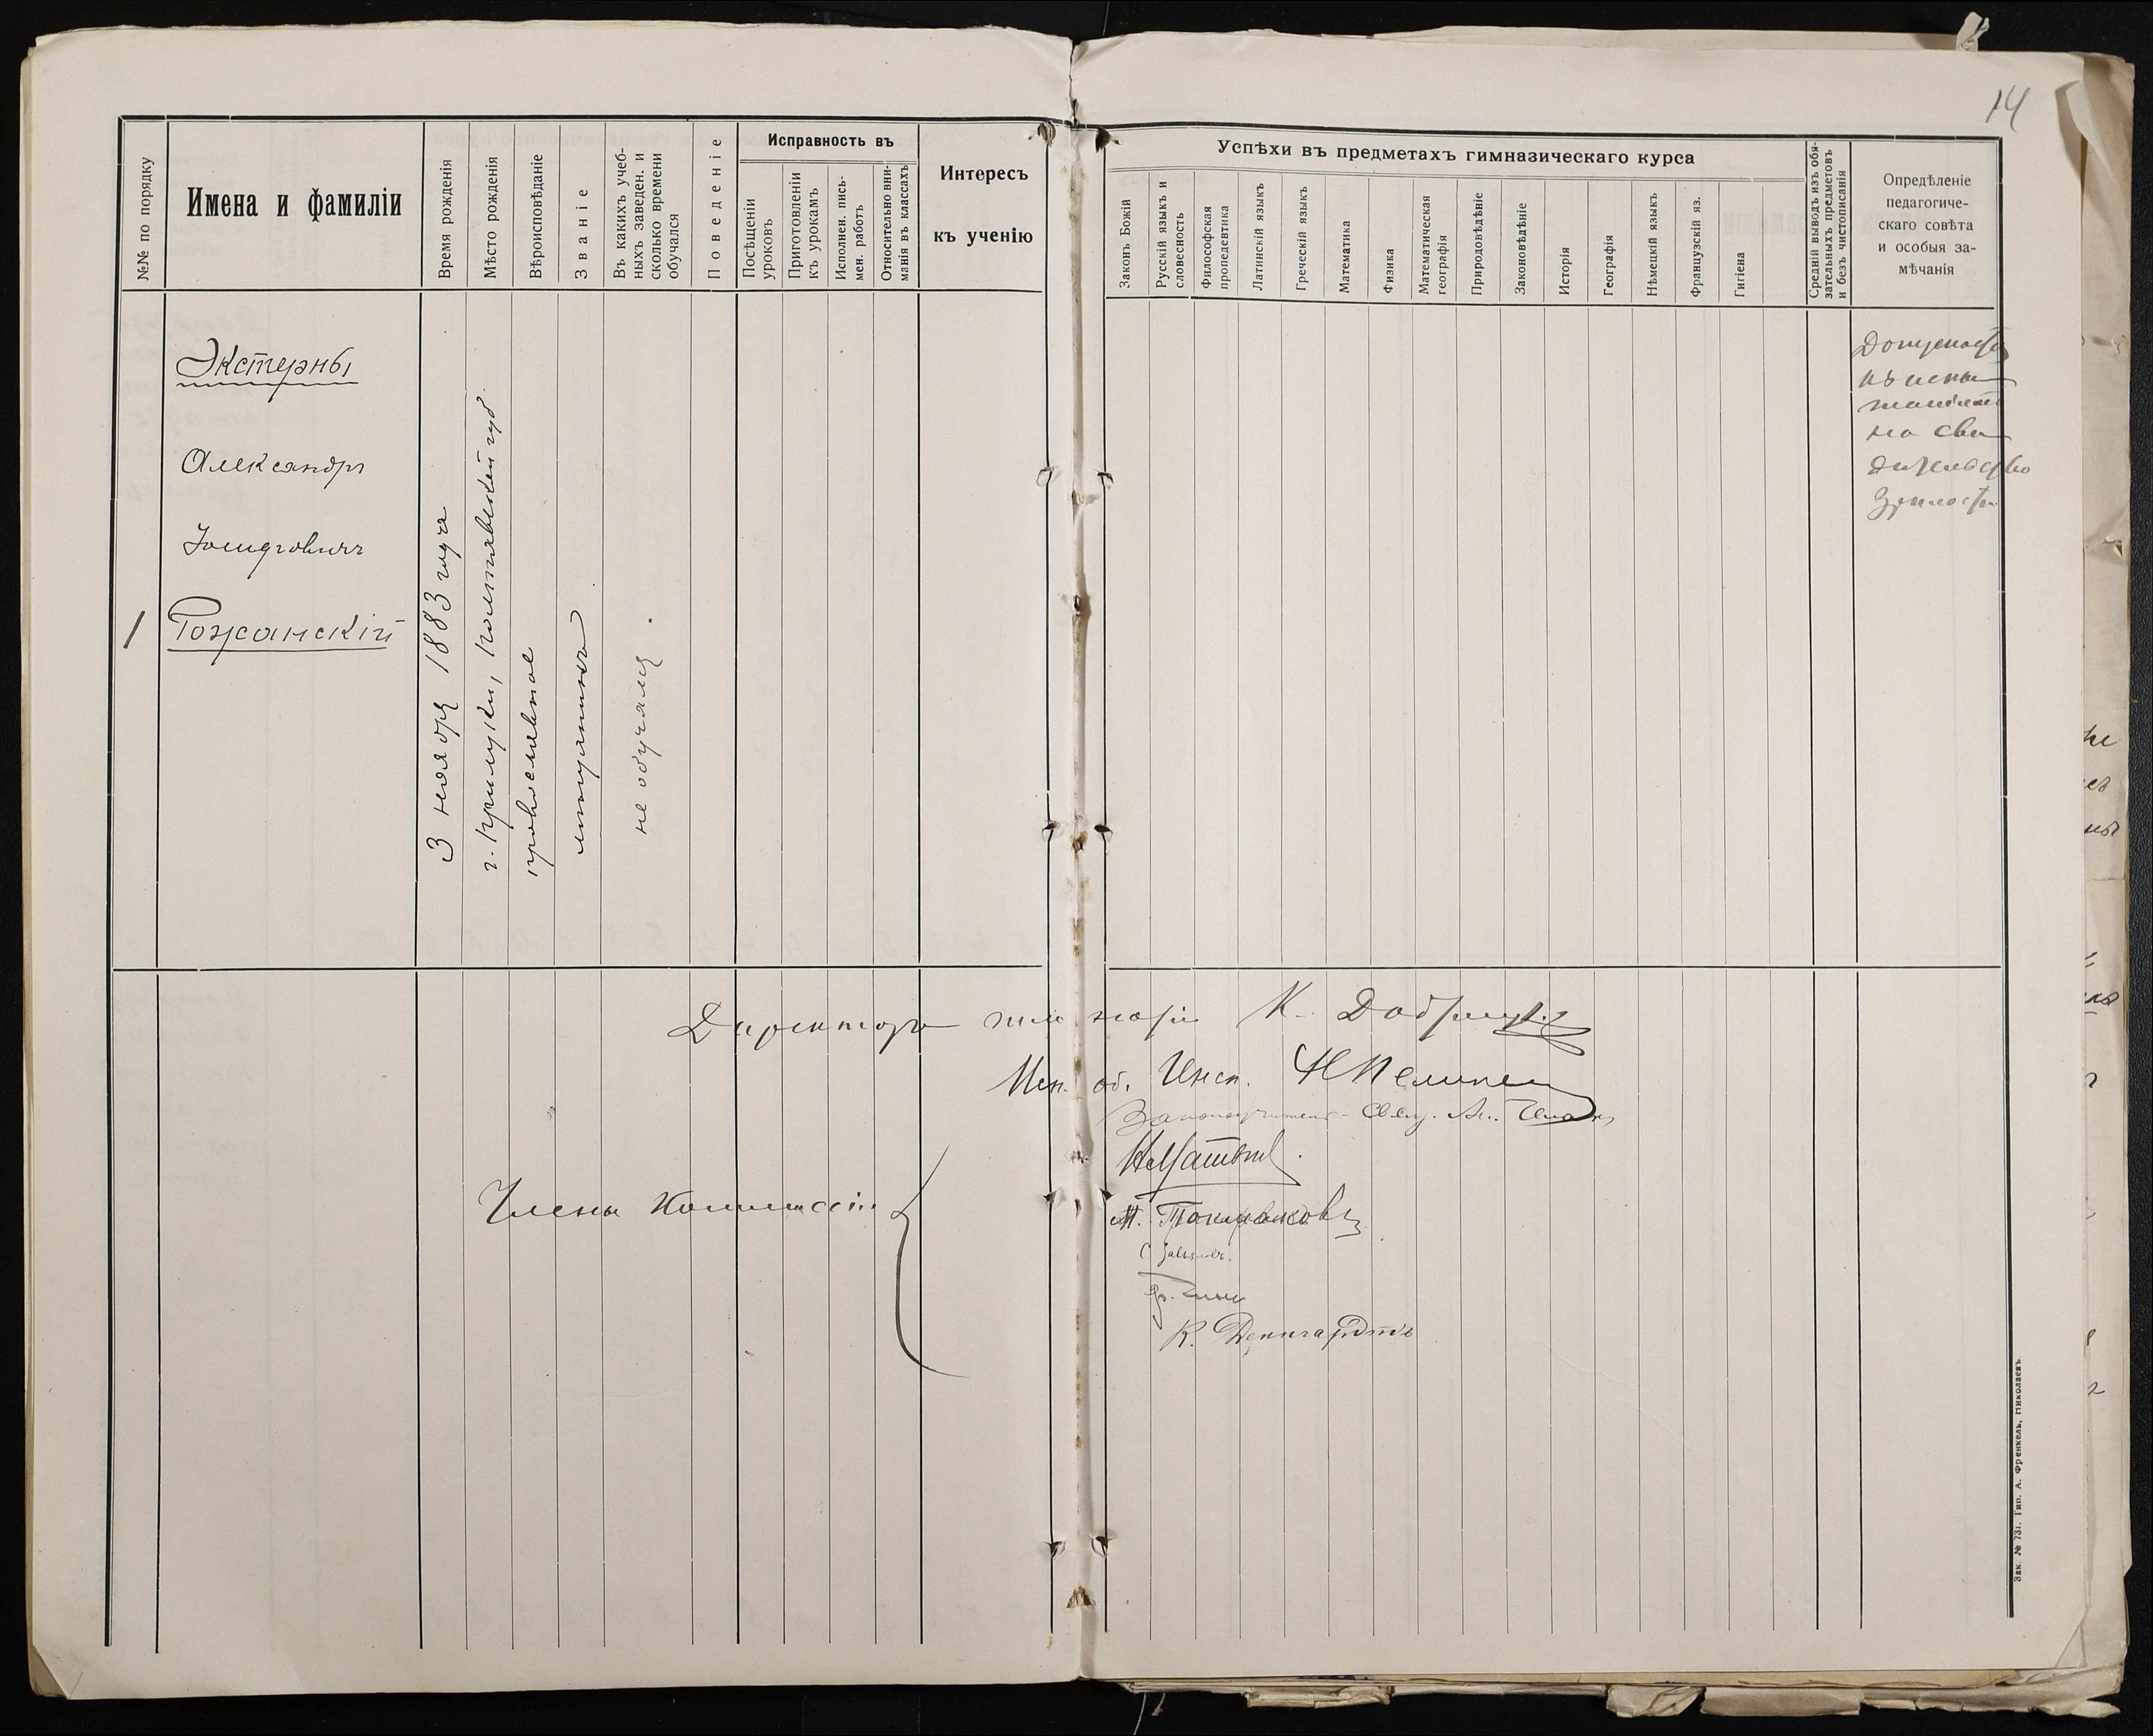 14
№№ по порядку
Имена и фамиліи
Время рожденія
Мѣсто рожденія
Вѣроисповѣданіе
Званіе
Въ какихъ учеб-
ныхъ заведен. и
сколько времени
обучался
Поведеніе
Исправность въ
Посѣщеніи
уроковъ
Приготовленіи
къ урокамъ
Исполнен. пись-
мен. работъ
Относительно вни-
манія въ классахъ
Интересъ
къ ученію
Успѣхи въ предметахъ гимназическаго курса
Законъ Божій
Русскій языкъ и
словесность
Философская
пропедевтика
Латинскій языкъ
Греческій языкъ
Математика
Физика
Математическая
географія
Природовѣдѣніе
Законовѣдѣніе
Исторія
Географія
Нѣмецкій языкъ
Французскій яз.
Гигіена
Средній выводъ изъ обя-
зательныхъ предметовъ
и безъ чистописанія
Опредѣленіе
педагогиче-
скаго совѣта
и особыя за-
мѣчанія
Экстерны
Александръ
1 Рожанскій
3 ноября 1883 года
г. Прилуки, Полтавской губ
православное
мѣщанинъ
не обучался
Допускается
къ испы
таніямъ
на сви
дѣтельство
зрѣлости
Директоръ гимназіи К.
Исп. об. Инсп.
Законоучитель Свящ.
Члены Коммиссіи
К. Деннгардтъ
Зак. № 731. Тип. А. Френкель, Николаевъ